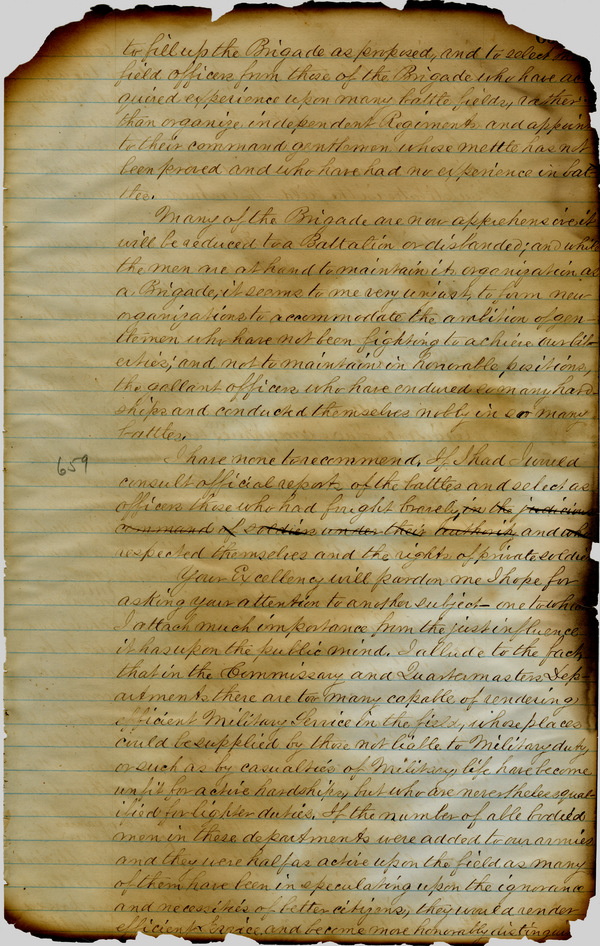 to fill up the Brigade as proposed, and to select
field officers from those of the Brigade who have ac
quired experience upon many battle fields, rather
than organize independent Regiments and appoint
to their command gentlemen whose mettle has not
been proved and who have had no experience in bat
tle.
Many of the Brigade are now apprehensive it
will be reduced to a Battalion or disbanded; and while
the men are at hand to maintain its organization as
a Brigade, it seems to me very unjust, to form new
organizations to accommodate the ambition of gen-
tlemen who have not been fighting to achieve our lib-
erties; and not to maintain in honorable positions,
the gallant officers who have endured so many hard-
ships and conducted themselves nobly in so many
battles.
659
I have none to recommend. If I had I would
consult official reports of the battles and select as
officers those who had fought bravely in the judicious
command of soldiers under their authority and who
respected themselves and the rights of private soldiers
Your Excellency will pardon me I hope for
asking your attention to another subject - one to which
I attach much importance from the just influence
it has upon the public mind. I allude to the fact,
that in the Commissary and Quartermasters Dep-
artments there are too many capable of rendering
efficient Military Service in the field, whose places
could be supplied by those not liable to Military duty,
or such as by casualties of Military life have become
unfit for active hardships, but who are nevertheless qual-
ified for lighter duties. If the number of able bodied
men in these departments were added to our armies
and they were half as active upon the field as many
of them have been in speculating upon the ignorance
and necessities of better citizens, they would render
efficient Service, and become more honorably